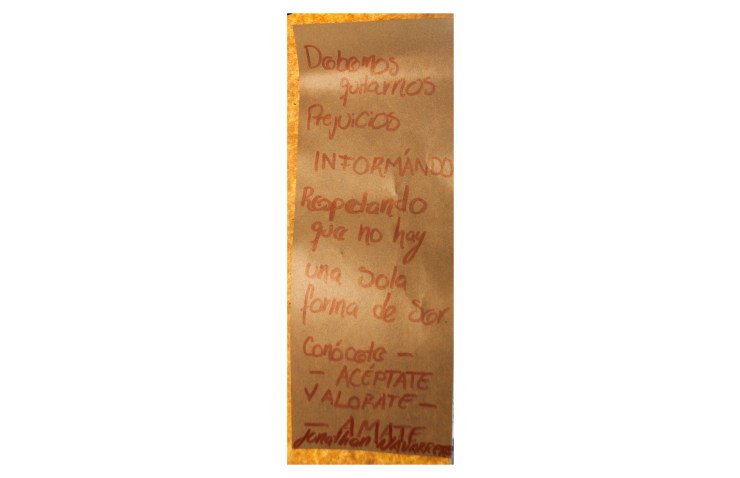 Debemos
quitarnos
Prejuicios
INFORMÁNDO
Respetando
que no hay
una sola
forma de Ser
Conócete -
- ACÉPTATE
VALORATE -
- AMATE
Jonathan Navarrete